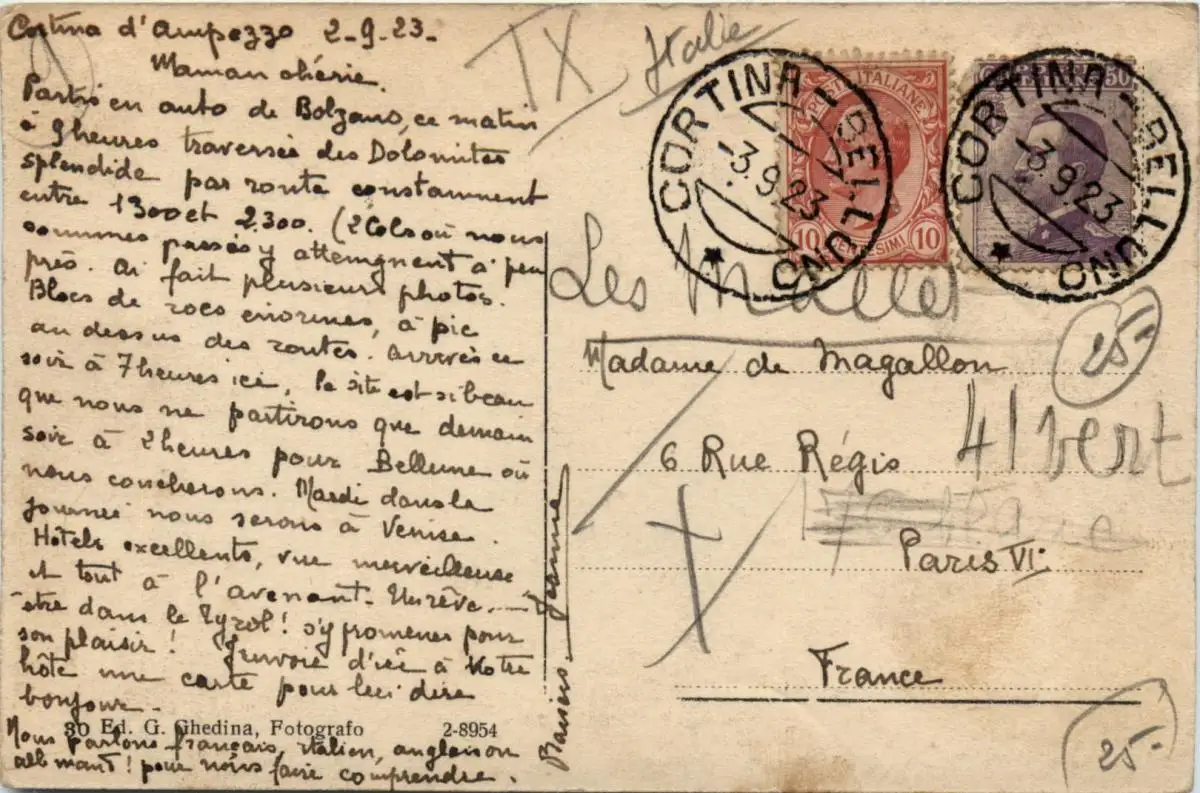 Cortina d'Ampezzo 2-9-23-
Maman chérie
Partis en auto de Bolzano, ce matin
à 9 heures traversée des Dolomites
splendide par route constamment
entre 1300 et 2.300. (2 Cols où nous
sommes passés y atteignent à peu
près. Ai fait plusieurs photos.
Blocs de rocs énormes, à pic
au dessus des routes. Arrivés ce
soir à 7 heures ici, le site est si beau
que nous ne partirons que demain
soir à 2 heures pour Bellune où
nous coucherons. Mardi dans la
journée nous serons à Venise.
Hôtels excellents, vue merveilleuse
et tout à l'avenant. Un rêve.
être dans le Tyrol! s'y promener pour
son plaisir! J'envoie d'ici à Votre
hôte une carte pour lui dire
bonjour.
30 Ed. G. Ghedina, Fotografo 2-8954
Nous parlons français, italien, anglais ou
allemand! pour nous faire comprendre.
Baisers. Jeanne
TX Italie
POSTE ITALIANE
10 CENTESIMI 10
50
CORTINA - BELLUNO
3.9.23
CORTINA - BELLUNO
3.9.23
Les Malles
25
Madame de Magallon
6 Rue Régis 41 vert
Paris VI
France
25-